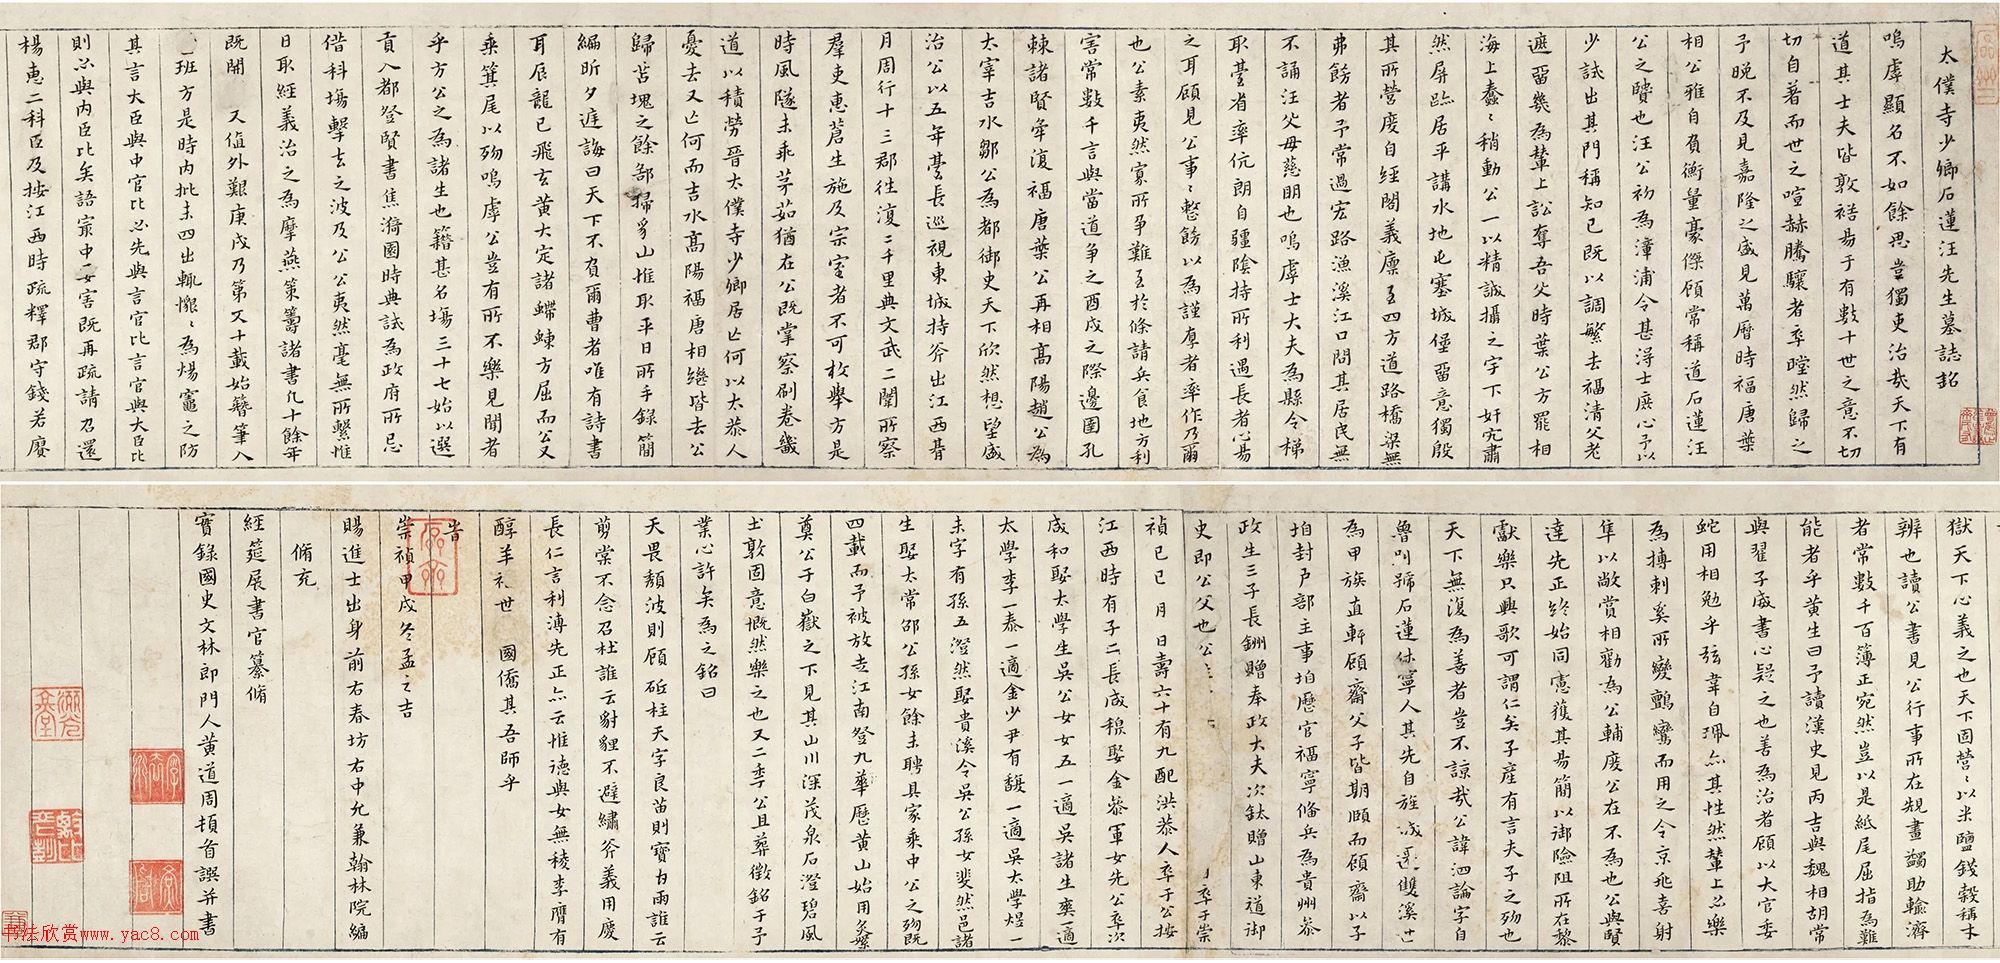 太僕寺少卿石蓮汪先生墓誌銘
嗚虖顯名不如餘思豈獨吏治哉天下有
道其士夫皆敦褚易于有數十世之意不切
切自著而世之喧赫騰驤者卒瞠然歸之
予晚不及見嘉隆之盛見萬曆時福唐葉
相公雅自負衡量豪傑顧常稱道石蓮汪
公之贒也汪公初為漳浦令甚浔士庶心予以
少試出其門稱知己既以調繁去福清父老
遮畱幾為輦上訟奪吾父時葉公方罷相
海上蠢〻稍動公一以精誠攝之宇下奸宄肅
然屏跡居平講水地屯塞城堡畱意獨殷
其所營度自經閣義廩至四方道路橋梁無
弗飭者予常過宏路漁溪江口問其居民無
不誦汪父母慈明也嗚虖士大夫為縣令梯
取臺省率伉朗自疆陰持所利遇長者心易
之耳顧見公事〻整飭以為謹厚者率作乃爾
也公素夷然寡所爭難至於條請兵食地方利
害常數千言與當道爭之酉戌之際邊圉孔
棘諸賢牵復福唐葉公再相高陽趙公為
太宰吉水鄒公為都御史天下欣然想望盛
治公以五年臺長巡視東城持斧出江西昝
月周行十三郡往復二千里典文武二闈所察
羣吏惠蒼生施及宗室者不可枚舉方是
時風隧未乖茅茹猶在公既掌察刷卷幾
道以積勞晉太僕寺少卿居亡何以太恭人
憂去又亡何而吉水高陽福唐相繼皆去公
歸苫塊之餘部掃象山惟取平日所手錄簡
編昕夕遲誨曰天下不負爾曹者唯有詩書
耳辰龍已飛玄黃大定諸蠕蝀方屈而公又
乘箕尾以歿嗚虖公豈有所不樂見聞者
乎方公之為諸生也籍甚名場三十七始以選
貢入都登賢書焦漪園時典試為政府所忌
借科場擊去之波及公公夷然毫無所繫惟
日取經義治之為摩燕策籌諸書凡十餘年
既開 又值外艱庚戌乃第又十載始簪筆入
班方是時內批未四出輒懨〻為煬竈之防
其言大臣與中官比必先與言官比言官與大臣比
則必與內臣比矣語寂中窾害既再疏請召還
楊惠二科臣及按江西時疏釋郡守錢若賡
獄天下心義之也天下固營〻以米鹽錢穀稱才
辨也讀公書見公行事所在規畫蠲助輸濟
者常數千百簿正宛然豈以是紙尾屈指為難
能者乎黃生曰予讀漢史見丙吉與魏相胡常
與翟子威書心疑之也善為治者顧以大官委
蛇用相勉乎弦韋自珮亦其性然輦上公樂
為搏刺奚所變鸇鸞而用之令京兆喜射
隼以敞賞相勸為公輔度公在不為也公與賢
達先正終始同憲獲其易簡以御險阻所在黎
獻樂只興歌可謂仁矣子產有言夫子之歿也
天下無復為善者豈不諒哉公諱泗論字自
魯別號石蓮休寧人其先自旌城遷雙溪世
為甲族直軒顧齋父子皆期頤而顧齋以子
垍封戶部主事垍歷官福寧條兵為貴州叅
政生三子長鉶贈奉政大夫次鈦贈山東道御
史即公父也公 卒于崇
禎己巳 月 日壽六十有九配洪恭人卒于公按
江西時有子二長成稷娶金叅軍女先公卒次
成和娶太學生吳公女女五一適吳諸生奭一適
太學李一泰一適金少尹有馥一適吳太學煜一
未字有孫五澄然娶貴溪令吳公孫女斐然邑諸
生娶太常邵公孫女餘未聘具家乘中公之歿既
四載而予被放去江南登九華歷黃山始用炙縏
奠公于白嶽之下見其山川深茂泉石澄碧風
土敦固意慨然樂之也又二季公且葬徵銘于予
業心許矣為之銘曰
天畏頹波則顧砥柱天字良苗則寶甘雨誰云
剪棠不念召杜誰云豺貍不避繡斧義用慶
長仁言利溥先正亦云惟德與女無稜李膺有
醇羊祜世 國僑其吾師乎
旹
崇禎甲戌冬孟之吉
賜進士出身前右春坊右中允兼翰林院編
脩充
經筵展書官纂脩
實錄國史文林郎門人黃道周頓首譔并書
书法欣赏www.yac8.com